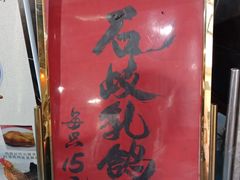 石岐乳鸽
每只15